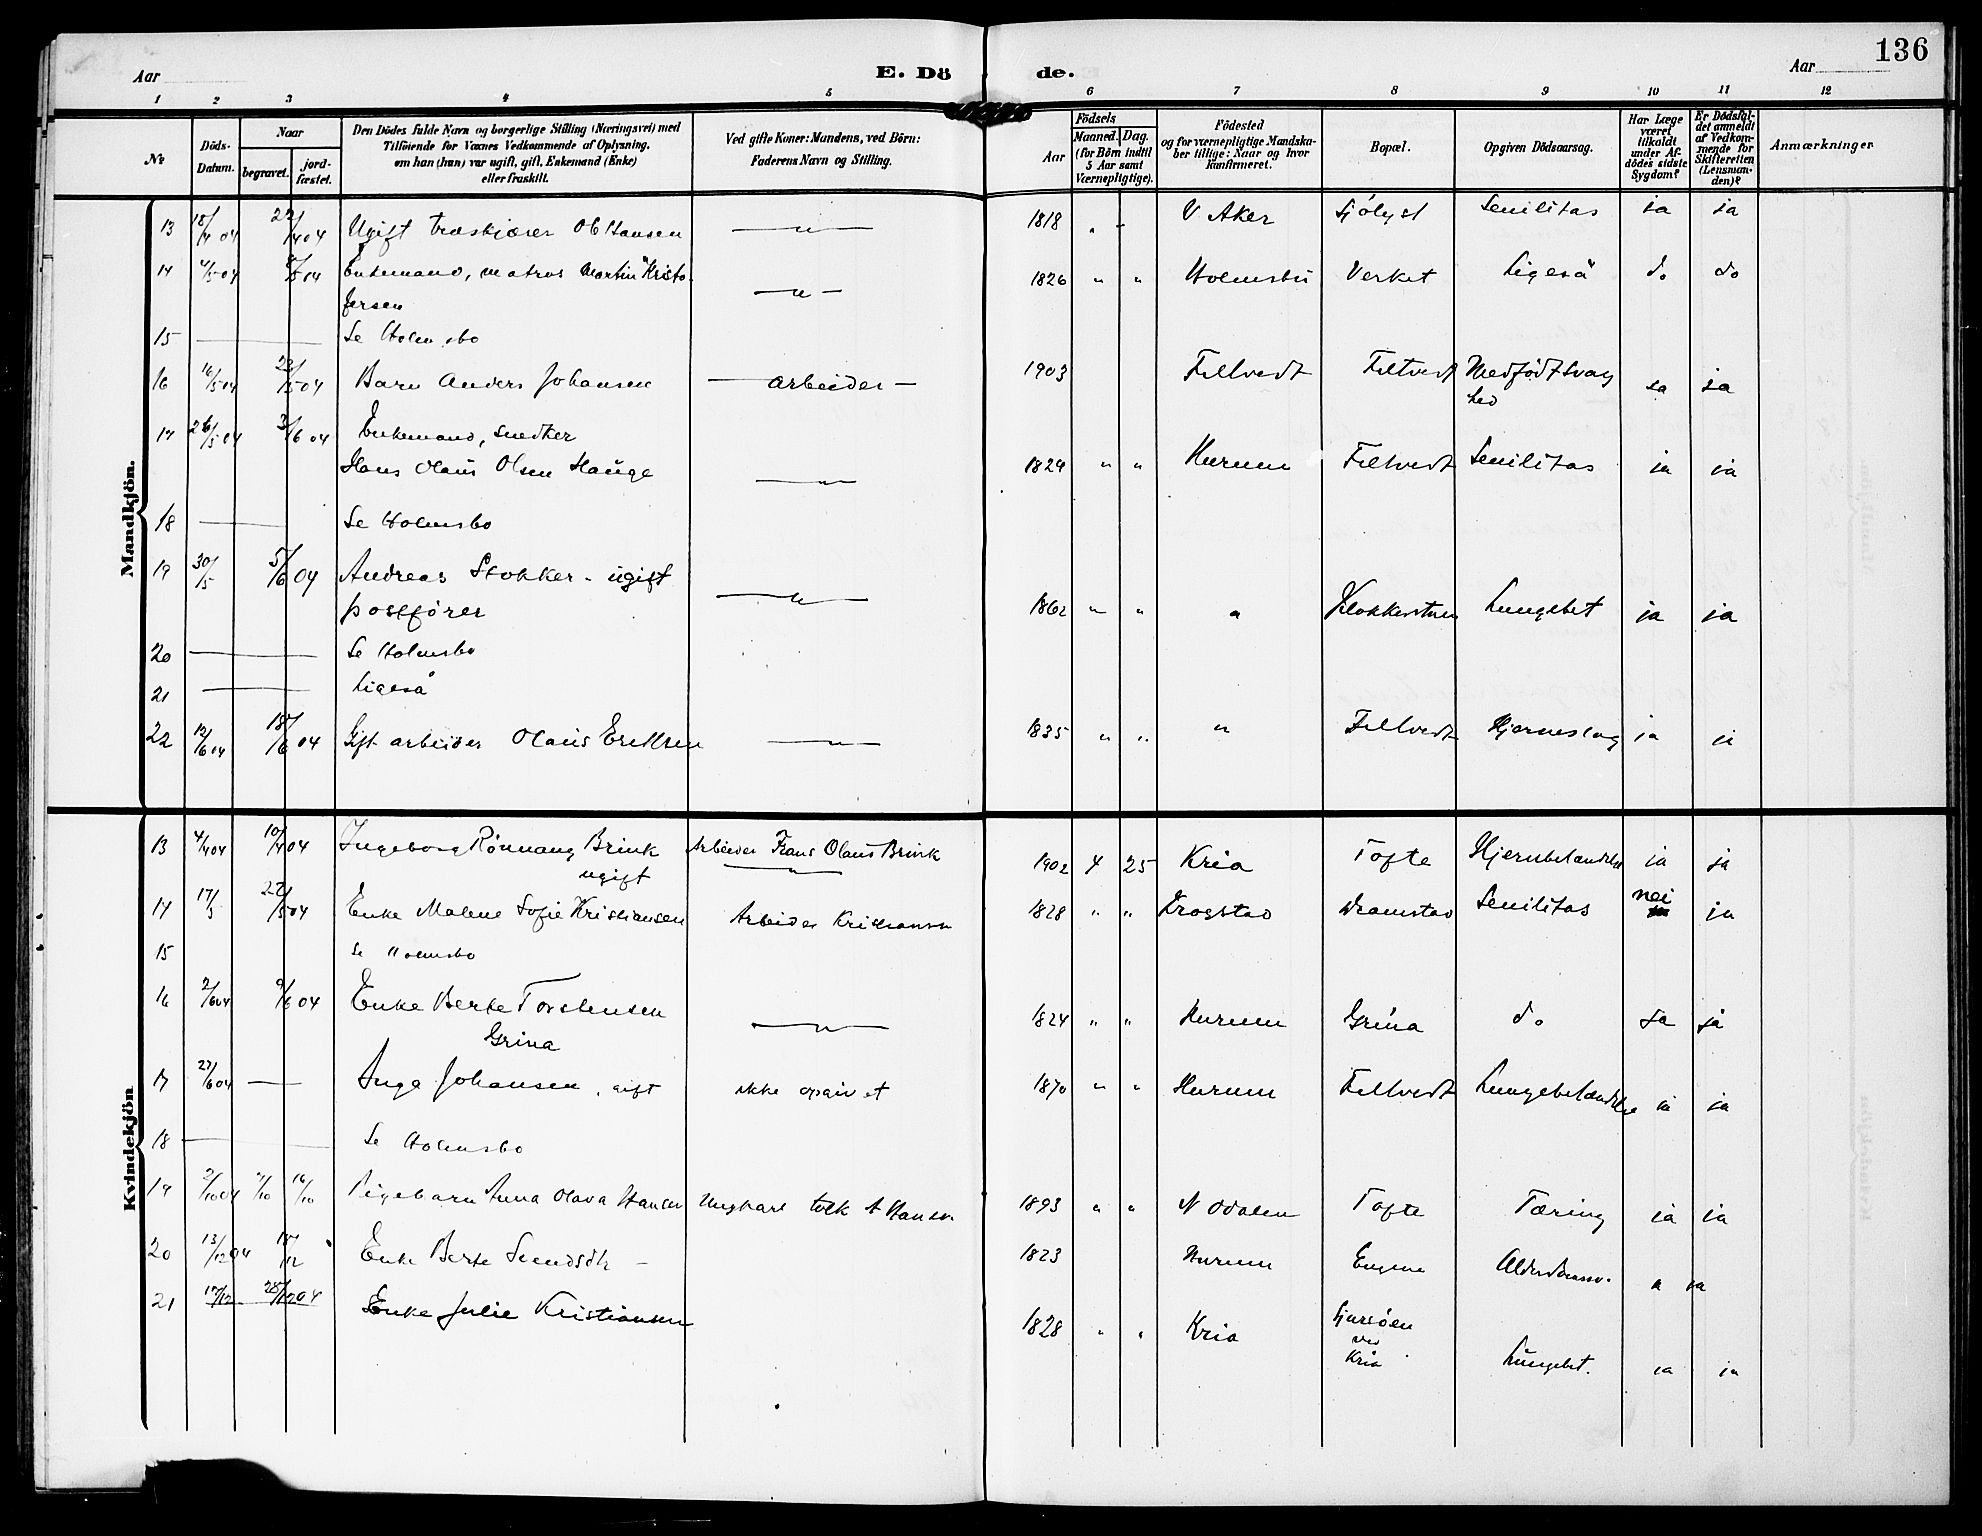 136
Aar
E. Dö de.
Aar
1 2 3 4 5 6 7 8 9 10 11 12
No
Döds-Datum.
Naar
begravet.
jord-fæstet.
Den Dödes fulde Navn og borgerlige Stilling (Næringsvei) med
Tilföiende for Voxnes Vedkommende af Oplysning,
om han (hun) var ugift, gift, Enkemand (Enke)
eller fraskilt.
Ved gifte Koner: Mandens, ved Börn:
Faderens Navn og Stilling.
Födsels
Aar
Maaned. Dag.
(for Börn indtil
5 Aar samt
Værnepligtige).
Födested
og for værnepligtige Mandska-
ber tillige: Naar og hvor
konfirmeret.
Bopæl.
Opgiven Dödsaarsag.
Har Læge
været
tilkaldt
under Af-
dödes sidste
Sygdom?
Er Dödsfal-
det anmeldt
af Vedkom-
mende for
Skifteretten
(Lensman-
den)?
Anmærkninger
Mandkjön.
13 18/4 04 22/4 04 Ugift træskjærer Ol Hansen — " — 1818 " - V Aker Sjölyst Senilitas ja ja
14 4/5 04 8/5 04 Enkemand, matros Martin Kristo- — " — 1826 " " Holmsbu Verket Ligeså do do
fersen
15 — Se Holmsbo
16 16/5 04 22/5 04 Barn Anders Johansen — arbeider — 1903 Filtvedt Filtvedt Medfödt svag ja ja
hed
17 26/5 04 3/6 04 Enkemand, snedker
Hans Olaus Olsen Hauge — " — 1824 " " Hurum Filtvedt Senilitas ja ja
18 — Se Holmsbo
19 30/5 5/6 04 Andreas Stokker - ugift
postförer — " — 1862 " " " Klokkerstuen Lungebet ja ja
20 — Se Holmsbo
21 — Ligeså
22 12/6 04 18/6 04 Gift arbeider Olaus Eriksen — " — 1835 " " " Filtvedt Hjerneslag ja ja
Kvindekjön
13 4/4 04 10/4 04 Ingeborg Rönnaug Brink Arbeider Frans Olaus Brink 1902 4 25 Kria Tofte Hjernbetændelse ja ja
ugift — " —
14 17/5 22/5 04 Enke Malene Sofie Kristiansen Arbeider Kristiansen 1828 " " Krogstad Dramstad Senilitas nei ja
15 Se Holmsbo
16 2/6 04 9/6 04 Enke Berte Torstensen — " — 1824 " " Hurum Grina do ja ja
Grina
17 27/6 04 — Inga Johansen, gift ikke opgivet 1870 " " Hurum Filtvedt Lungebetændelse ja ja
18 — Se Holmsbo
19 2/10 04 7/10 16/10 Pigebarn Anna Olava Hansen Ungkarl A Hansen 1893 " " N Odalen Tofte Tæring ja ja
20 13/12 04 18/12 Enke Berte Svendsdtr — 1823 Hurum Engene ja
21 17/12 28/12 04 Enke Julie Kristiansen 1828 " " Kria
ved
Kria Lungebet. ja ja